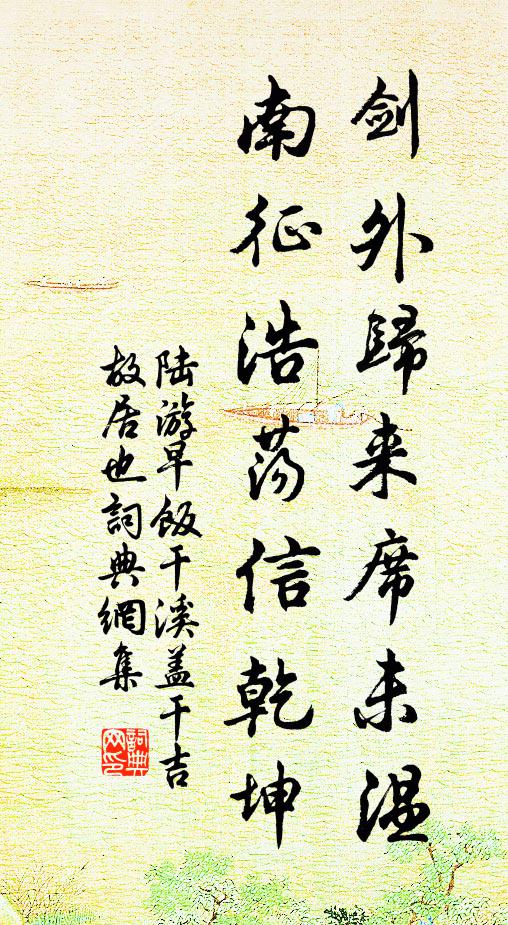 剑外歸来席未温
南征浩荡信乾坤
陆游早飯干溪盖干吉
故居也詞典網集
詞典
网印